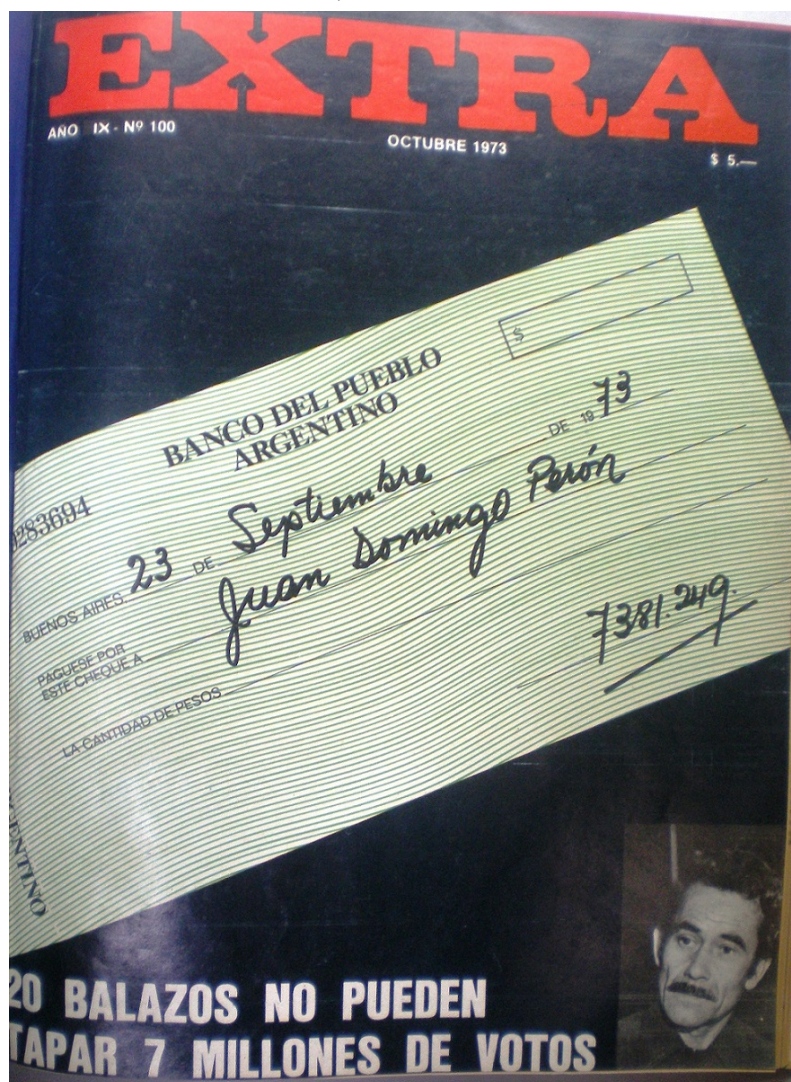 EXTRA
AÑO IX - Nº 100
OCTUBRE 1973
$ 5.—
$
BANCO DEL PUEBLO
ARGENTINO
283694
BUENOS AIRES, 23 DE Septiembre DE 19 73
PAGUESE POR
ESTE CHEQUE A Juan Domingo Perón
LA CANTIDAD DE PESOS 7381.249.
20 BALAZOS NO PUEDEN
TAPAR 7 MILLONES DE VOTOS